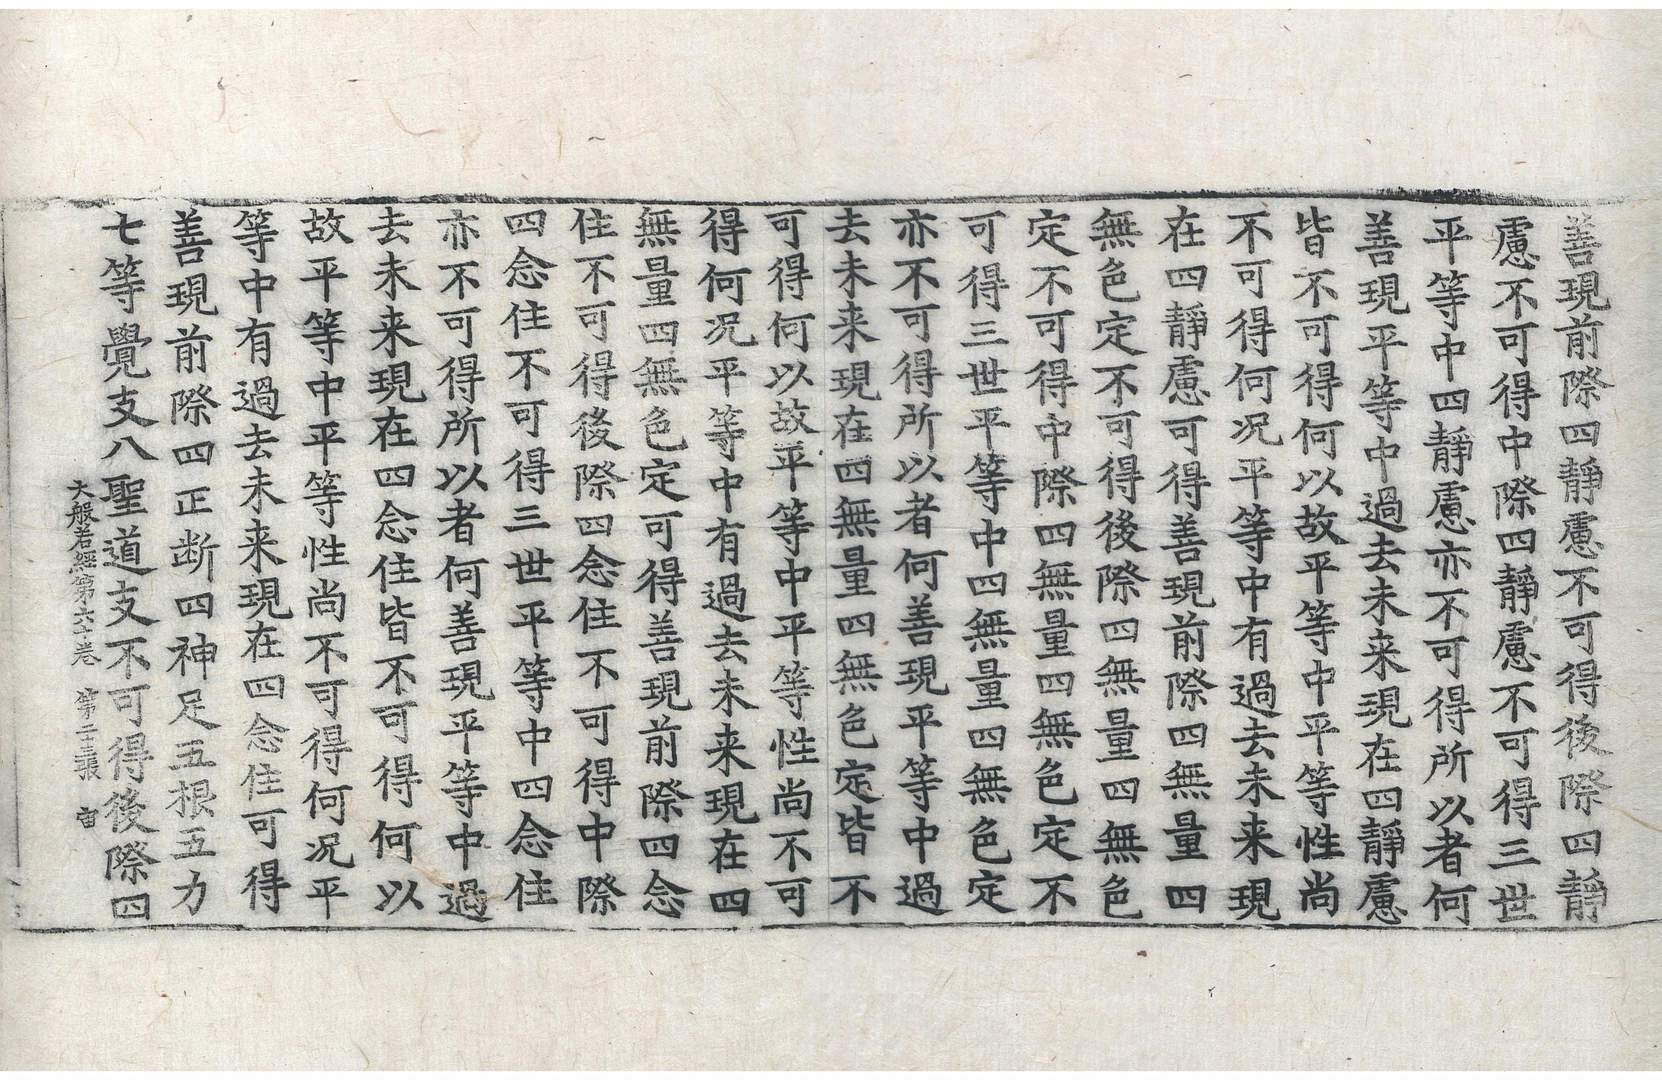 善現前際四靜慮不可得後際四靜
慮不可得中際四靜慮不可得三世
平等中四靜慮亦不可得所以者何
善現平等中過去未来現在四靜慮
皆不可得何以故平等中平等性尚
不可得何况平等中有過去未来現
在四靜慮可得善現前際四無量四
無色定不可得後際四無量四無色
定不可得中際四無量四無色定不
可得三世平等中四無量四無色定
亦不可得所以者何善現平等中過
去未来現在四無量四無色定皆不
可得何以故平等中平等性尚不可
得何况平等中有過去未来現在四
無量四無色定可得善現前際四念
住不可得後際四念住不可得中際
四念住不可得三世平等中四念住
亦不可得所以者何善現平等中過
去未来現在四念住皆不可得何以
故平等中平等性尚不可得何况平
等中有過去未来現在四念住可得
善現前際四正断四神足五根五力
七等覺支八聖道支不可得後際四
大般若經第六十卷 第 張 宙